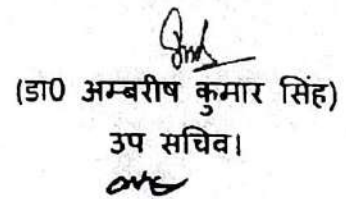 (डा0 अम्बरीष कुमार सिंह)
उप सचिव।